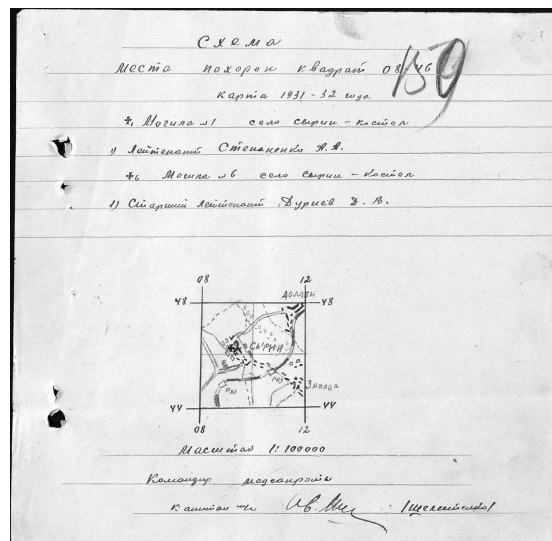 Схема
места похорон квадрат 08-46
159
карта 1931-32 года
1 Могила №1 село сырин-костел
1) Лейтенант Степаненко А.А.
6 Могила №6 село сырин-костел
1) Старший лейтенант Дуриев Д.В.
08 12
48 48
ДОЛЛЕН
СЫРИН
РАЗ РАЗ
44 44
08 12
Масштаб 1:100000
Командир медсанроты
капитан м/с /Шелестенко/